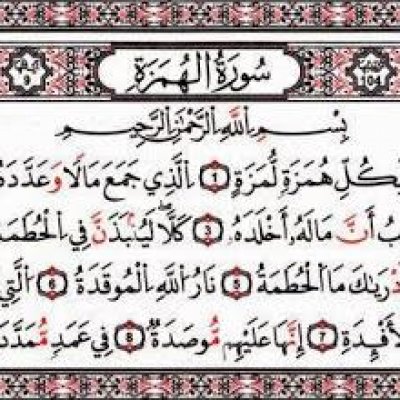 سُورَةُ الْهُمَزَةِ
104
9
بِسْمِ اللَّهِ الرَّحْمَٰنِ الرَّحِيمِ
لِكُلِّ هُمَزَةٍ لُّمَزَةٍ ﴿1﴾ الَّذِي جَمَعَ مَالًا وَعَدَّدَهُ
بُ أَنَّ مَالَهُ أَخْلَدَهُ ﴿3﴾ كَلَّا ۖ لَيُنْبَذَنَّ فِي الْحُطَمَةِ
دْرَىٰكَ مَا الْحُطَمَةُ ﴿5﴾ نَارُ اللَّهِ الْمُوقَدَةُ ﴿6﴾ الَّتِي
لْأَفْئِدَةِ ﴿7﴾ إِنَّهَا عَلَيْهِم مُّوصَدَةٌ ﴿8﴾ فِي عَمَدٍ مُّمَدَّدَ